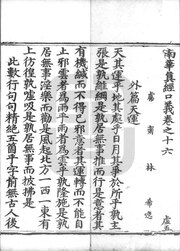 南華眞經口義卷之十六
虛五
鬳齋林希逸
外篇天運
天其運乎地其處乎日月其爭於所乎孰主
張是孰維綱是孰居無事推而行是意者其
有機緘而不得已邪意者其運轉而不能自
止邪雲者爲雨乎雨者爲雲乎孰隆施是孰
居無事淫樂而勸是風起北方一西一東有
上彷徨孰噓吸是孰居無事而披拂是
此數行句句精絶五箇乎字前無古人後